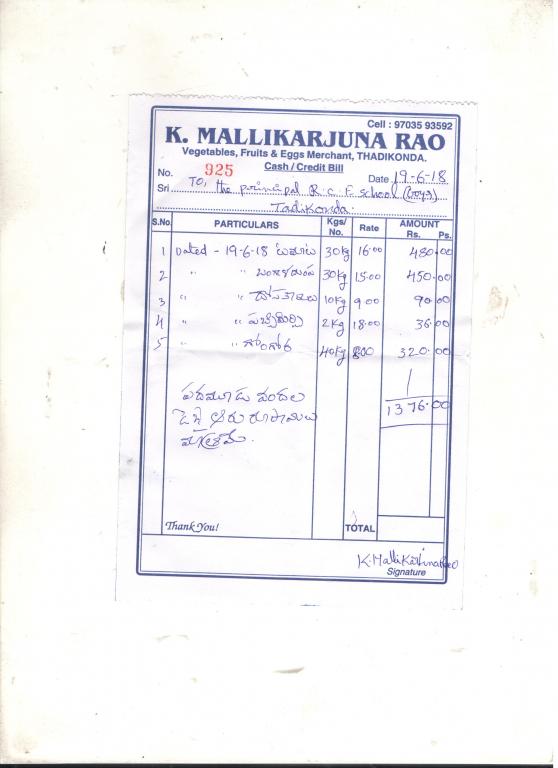 Cell : 97035 93592
K. MALLIKARJUNA RAO
Vegetables, Fruits & Eggs Merchant, THADIKONDA.
Cash / Credit Bill
No. 925 Date 19-6-18
Sri To, the principal R.C.E School (Boys)
Tadikonda.
S.No. PARTICULARS Kgs/ No. Rate AMOUNT Rs. Ps.
1 Dated - 19-6-18 టమాట 30kg 16.00 480.00
2 " " బంగాళదుంప 30kg 15.00 450.00
3 " " దోసకాయలు 10kg 9.00 90.00
4 " " పచ్చిమిర్చి 2kg 18.00 36.00
5 " " గోంగూర 40kg 8.00 320.00
1376.00
పదమూడు వందల
డెబ్బై ఆరు రూపాయలు
మాత్రమే.
Thank You!
TOTAL
K. Mallikarjuna Rao
Signature